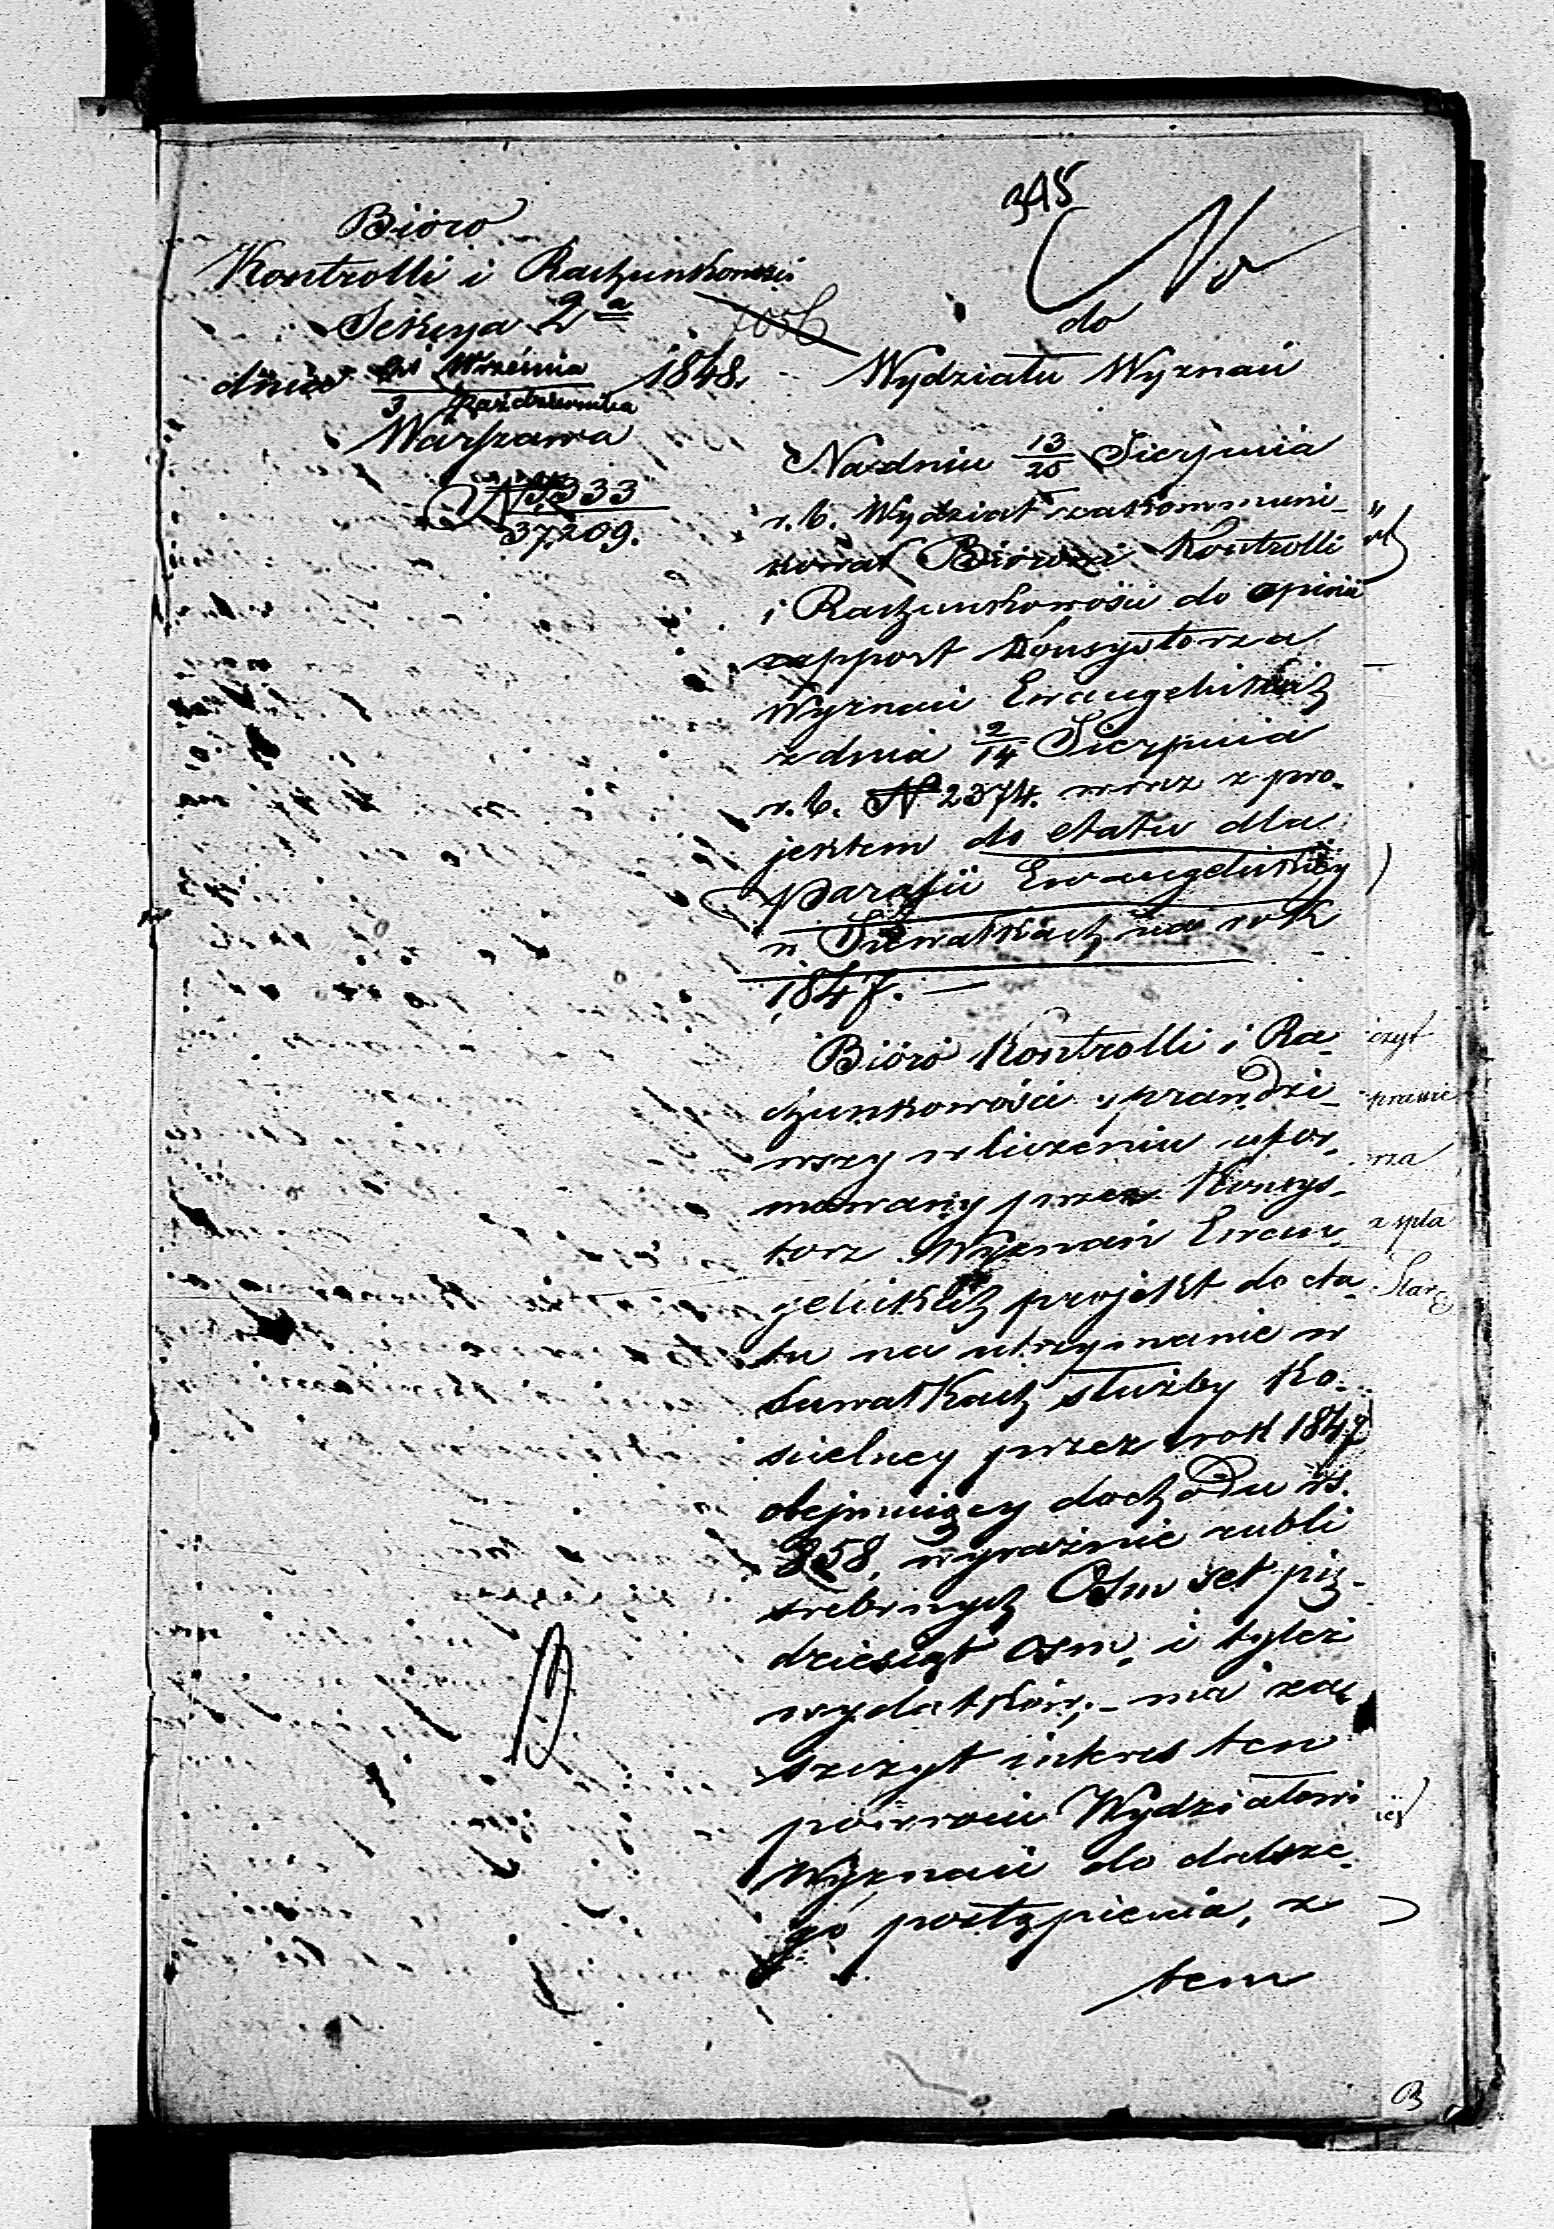 345
Bióro
Kontrolli i Rachunkowości
Sekcya 2a
dnia 21 Września / 3 Października 1848.
Warszawa
N 9333 / 37,209.
No
do
Wydziału Wyznań
Na dniu 13/25 Sierpnia
r. b. Wydział zakommuni-
kował Biórowi Kontrolli
i Rachunkowości do opinii
rapport Konsystorza
Wyznań Ewangelickich
z dnia 2/14 Sierpnia
r. b. N 2374. wraz z pro-
jektem do etatu dla
Parafii Ewangelickiey
w Suwałkach na rok
1847. —
Bióro Kontrolli i Ra-
chunkowości sprawdzi-
wszy w liczeniu ufor-
mowany przez Konsys-
torz Wyznań Ewan-
gelickich projekt do eta-
tu na utrzymanie w
Suwałkach służby Ko-
scielney przez rok 1847
obejmuiący dochodu rs.
858, wyraźnie rubli
srebrnych Osm set pięć-
dziesiąt osm, i tyleż
wydatków, - ma za-
szczyt interes ten
powrócić Wydziałowi
Wyznań do dalsze-
go postąpienia, z
tem
czyt
prawie
rza
z spła
Star